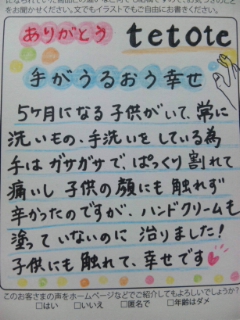 をお聞かせください。文でもイラストでもご自由にお書きください。
ありがとう tetote
手がうるおう幸せ
5ヶ月になる子供がいて、常に
洗いもの、手洗いをしている為
手はガサガサで、ぱっくり割れて
痛いし 子供の顔にも触れず
辛かったのですが、ハンドクリームも
塗っていないのに 治りました!
子供にも触れて、幸せです♡
このお客さまの声をホームページなどでご紹介してもよろしいでしょうか?
□はい □いいえ □匿名で □年齢はダメ